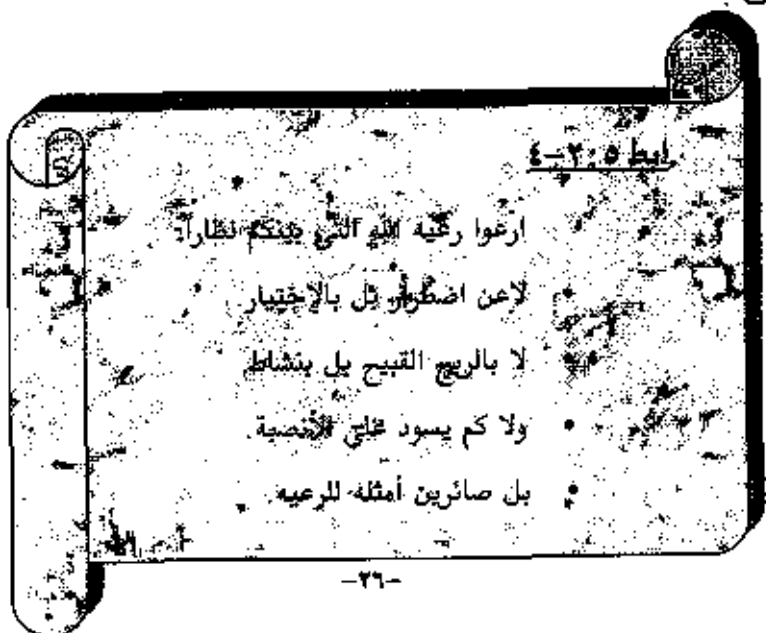 ابط ٥ : ٢-٤
ارعوا رعيه الله التي بينكم نظاراً
لاعن اضطرار بل بالإختيار
• لا بالربح القبيح بل بنشاط
• ولا كم يسود على الأنصبة
• بل صائرين أمثله للرعيه
-٢٦-